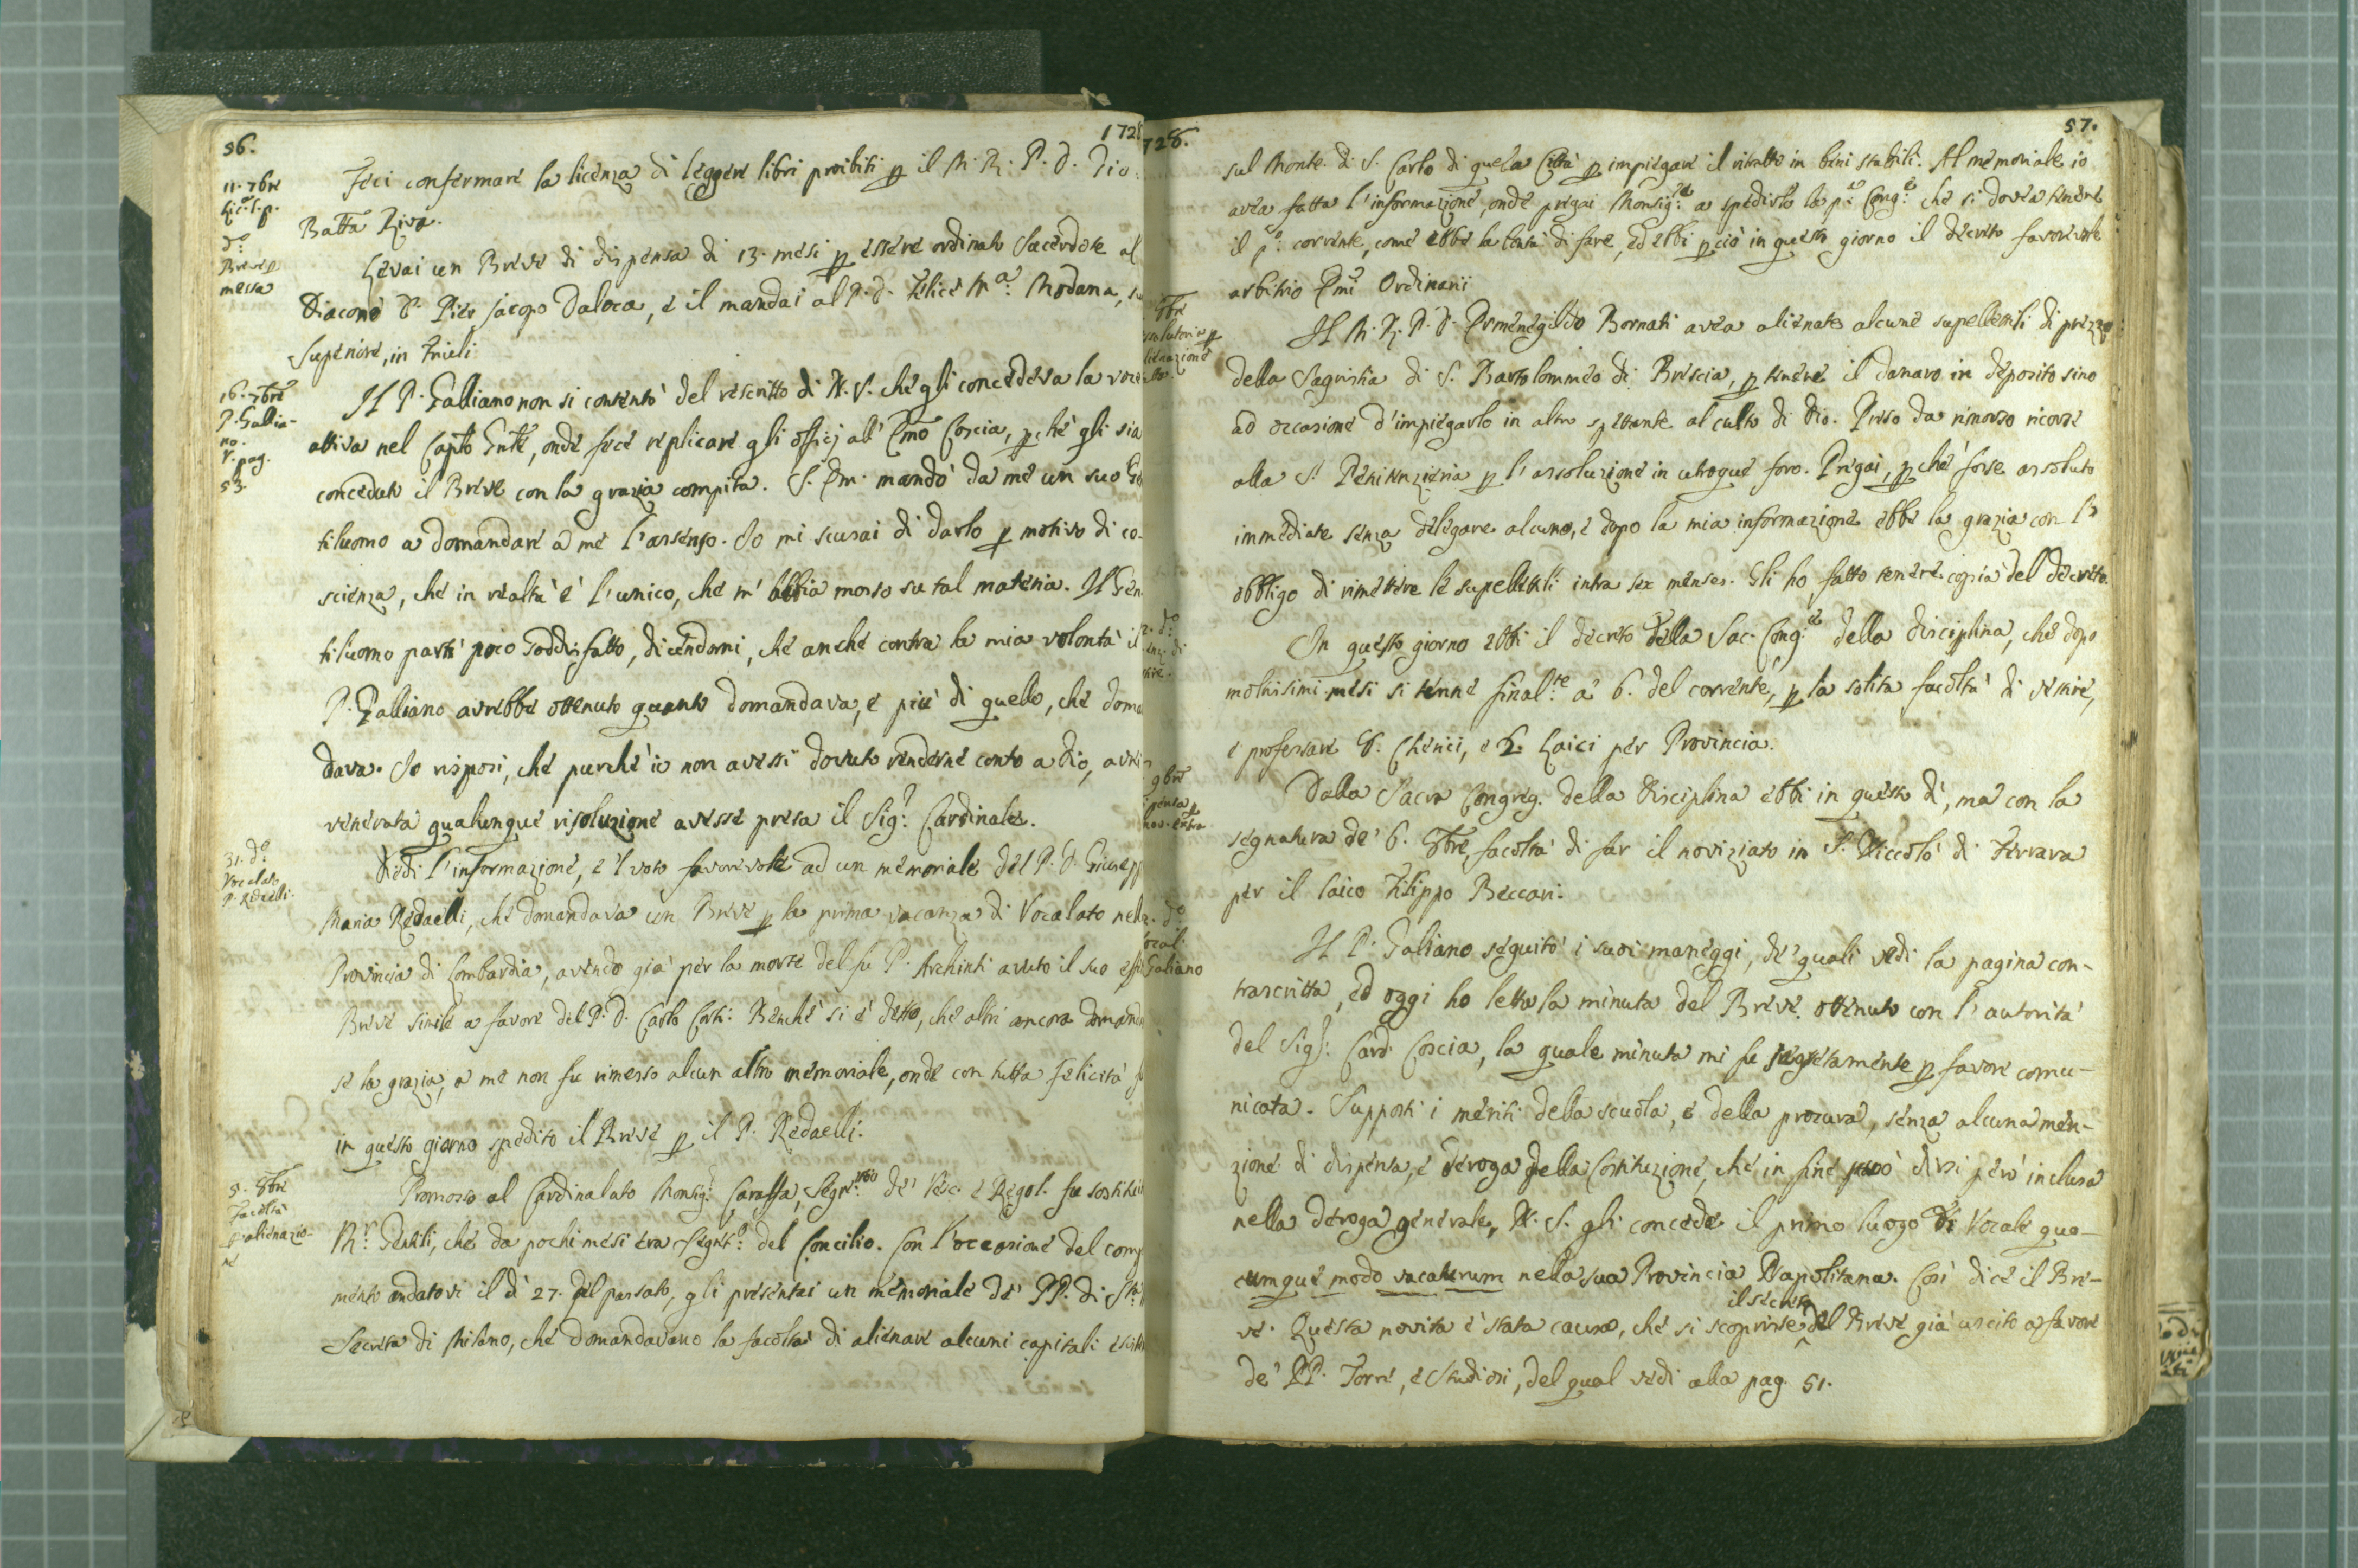 56.
1728
11. 7bre
Lic. l. p.
Feci confermare la licenza di leggere libri proibiti p il M. R. P. D. Gio:
Batta Riva.
do
Breve p
messa
Levai un Breve di dispensa di 13. mesi p essere ordinato Sacerdote al
Diacono D. Pier Jacopo Daloca, e il mandai al P. D. Felice Ma: Modana,
Superiore, in Friuli
16. 7bre
P. Gallia-
no.
V. pag.
53.
Il P. Galliano non si contentò del rescritto di N. S. che gli concedeva la voce
attiva nel Capto Gnle, onde fece replicare gli officj all' Emo Coscia, pchè gli sia
conceduto il Breve con la grazia compita. S. Em. mandò da me un suo Gen
tiluomo a domandare a me l'assenso. Io mi scusai di darlo p motivo di co-
scienza, che in realtà è l'unico, che m'abbia mosso su tal materia. Il Gen
tiluomo partì poco soddisfatto, dicendomi, che anche contra la mia volontà il
P. Galliano avrebbe ottenuto quanto domandava, e più di quello, che doman
dava. Io risposi, che purchè io non avessi dovuto renderne conto a Dio, avrei
venerata qualunque risoluzione avesse presa il Sig: Cardinale.
31. do
Vocalato
P. Redaelli.
Diedi l'informazione, e 'l voto favorevole ad un memoriale del P. D. Giusepp
Maria Redaelli, che domandava un Breve p la prima vacanza di Vocalato nella
Provincia di Lombardia, avendo già per la morte del fu P. Archinti avuto il suo eff
Breve simile a favore del P. D. Carlo Corti: Benchè si è detto, che altri ancora domandas
se la grazia, a me non fu rimesso alcun altro memoriale, onde con tutta felicità fu
in questo giorno spedito il Breve p il P. Redaelli.
5. 8bre
Facoltà
p alienazio-
ne
Promosso al Cardinalato Monsig: Caraffa, Segrio de' Vesc. e Regol. fu sostituito
Mr. Gentili, che da pochi mesi era Segreto: del Concilio. Con l'occasione del comp
mento andatovi il dì 27. del passato, gli presentai un memoriale de' PP. di Sto:
Secreta di Milano, che domandavano la facoltà di alienare alcuni capitali esist
728.
57.
sul Monte di S. Carlo di quela Città p impiegare il ritratto in beni stabili. Al memoriale io
avea fatta l'informazione, onde pregai Monsig: a spedirlo la pa Cong: che si dovea tenere
il po: corrente, come ebbe la bontà di fare, ed ebbi pciò in questo giorno il decreto favorevole
arbitrio Emi Ordinarii
8bre
assolutoria p
alienazione
Il M. R. P. D. Ermenegildo Bornati avea alienate alcune supellettili di prezzo
della Sagristia di S. Bartolommeo di Brescia, p tenere il danaro in deposito sino
ad occasione d'impiegarlo in altro spettante al culto di Dio. Preso da rimorso ricorse
alla S. Penitenzieria p l'assoluzione in utroque foro. Pregai, pchè fosse assoluto
immediate senza delegare alcuno, e dopo la mia informazione ebbe la grazia con l'
obbligo di rimettere le supellettili intra sex menses. Gli ho fatto tenere copia del decreto.
do
In questo giorno ebbi il decreto della Sac. Cong: della disciplina, che dopo
moltissimi mesi si tenne finalte a' 6. del corrente, p la solita facoltà di vestire,
e professare 8. Cherici, e 6. Laici per Provincia.
9bre
dispensa p
nov. extra
Dalla Sacra Congreg. della Disciplina ebbi in questo dì, ma con la
segnatura de' 6. 8bre, facoltà di far il noviziato in S. Niccolò di Ferrara
per il laico Filippo Beccari.
do
Vocal.
Galiano
Il P. Galiano seguitò i suoi maneggi, de' quali vedi la pagina con-
trascritta, ed oggi ho letta la minuta del Breve ottenuto con l'autorità
del Sig: Card. Coscia, la quale minuta mi fu segretamente p favore comu-
nicata. Supposti i meriti della scuola, e della procura, senza alcuna men-
zione di dispensa, e deroga della Costituzione, che in fine può dirsi però inclusa
nella deroga generale, N. S. gli concede il primo luogo di Vocale quo-
cumque modo vacaturum nella sua Provincia Napolitana. Così dice il Bre-
ve. Questa novità è stata causa, che si scoprisse il secreto del Breve già uscito a favore
de' PP. Torri, e Studiosi, del qual vedi alla pag. 51.